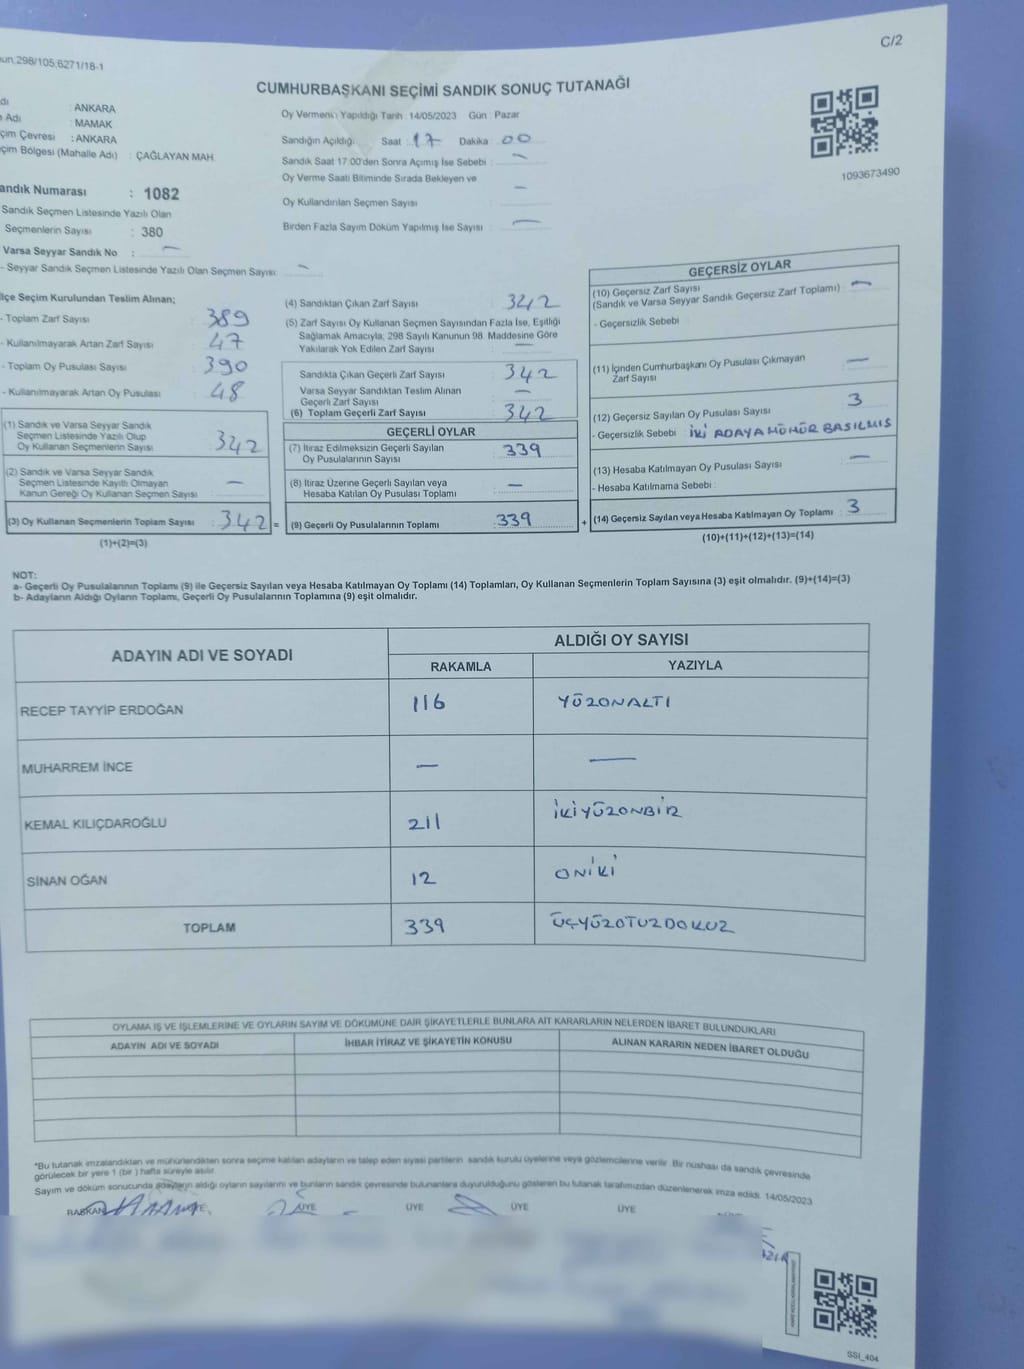 C/2
298/105;6271/18-1
CUMHURBAŞKANI SEÇİMİ SANDIK SONUÇ TUTANAĞI
: ANKARA
Adı : MAMAK
Seçim Çevresi : ANKARA
Seçim Bölgesi (Mahalle Adı) : ÇAĞLAYAN MAH.
Sandık Numarası : 1082
Sandık Seçmen Listesinde Yazılı Olan
Seçmenlerin Sayısı : 380
Varsa Seyyar Sandık No : —
- Seyyar Sandık Seçmen Listesinde Yazılı Olan Seçmen Sayısı: —
Oy Vermenin Yapıldığı Tarih : 14/05/2023 Gün : Pazar
Sandığın Açıldığı: Saat : 17 Dakika : 00
Sandık Saat 17:00'den Sonra Açımış İse Sebebi : —
Oy Verme Saati Bitiminde Sırada Bekleyen ve
Oy Kullandırılan Seçmen Sayısı : —
Birden Fazla Sayım Döküm Yapılmış İse Sayısı : —
1093673490
İlçe Seçim Kurulundan Teslim Alınan;
- Toplam Zarf Sayısı : 389
- Kullanılmayarak Artan Zarf Sayısı : 47
- Toplam Oy Pusulası Sayısı : 390
- Kullanılmayarak Artan Oy Pusulası : 48
(1) Sandık ve Varsa Seyyar Sandık
Seçmen Listesinde Yazılı Olup
Oy Kullanan Seçmenlerin Sayısı : 342
(2) Sandık ve Varsa Seyyar Sandık
Seçmen Listesinde Kayıtlı Olmayan
Kanun Gereği Oy Kullanan Seçmen Sayısı : —
(3) Oy Kullanan Seçmenlerin Toplam Sayısı : 342 =
(1)+(2)=(3)
(4) Sandıktan Çıkan Zarf Sayısı : 342
(5) Zarf Sayısı Oy Kullanan Seçmen Sayısından Fazla İse, Eşitliği
Sağlamak Amacıyla, 298 Sayılı Kanunun 98. Maddesine Göre
Yakılarak Yok Edilen Zarf Sayısı : —
Sandıkta Çıkan Geçerli Zarf Sayısı : 342
Varsa Seyyar Sandıktan Teslim Alınan
Geçerli Zarf Sayısı : —
(6) Toplam Geçerli Zarf Sayısı : 342
GEÇERLİ OYLAR
(7) İtiraz Edilmeksizin Geçerli Sayılan
Oy Pusulalarının Sayısı : 339
(8) İtiraz Üzerine Geçerli Sayılan veya
Hesaba Katılan Oy Pusulası Toplamı : —
(9) Geçerli Oy Pusulalarının Toplamı : 339 +
GEÇERSİZ OYLAR
(10) Geçersiz Zarf Sayısı
(Sandık ve Varsa Seyyar Sandık Geçersiz Zarf Toplamı) : —
- Geçersizlik Sebebi :
(11) İçinden Cumhurbaşkanı Oy Pusulası Çıkmayan
Zarf Sayısı : —
(12) Geçersiz Sayılan Oy Pusulası Sayısı : 3
- Geçersizlik Sebebi : İKİ ADAYA MÜHÜR BASILMIŞ
(13) Hesaba Katılmayan Oy Pusulası Sayısı : —
- Hesaba Katılmama Sebebi :
(14) Geçersiz Sayılan veya Hesaba Katılmayan Oy Toplamı : 3
(10)+(11)+(12)+(13)=(14)
NOT:
a- Geçerli Oy Pusulalarının Toplamı (9) ile Geçersiz Sayılan veya Hesaba Katılmayan Oy Toplamı (14) Toplamları, Oy Kullanan Seçmenlerin Toplam Sayısına (3) eşit olmalıdır. (9)+(14)=(3)
b- Adayların Aldığı Oyların Toplamı, Geçerli Oy Pusulalarının Toplamına (9) eşit olmalıdır.
ADAYIN ADI VE SOYADI
ALDIĞI OY SAYISI
RAKAMLA YAZIYLA
RECEP TAYYİP ERDOĞAN 116 YÜZONALTI
MUHARREM İNCE — —
KEMAL KILIÇDAROĞLU 211 İKİYÜZONBİR
SİNAN OĞAN 12 ONİKİ
TOPLAM 339 ÜÇYÜZOTUZDOKUZ
OYLAMA İŞ VE İŞLEMLERİNE VE OYLARIN SAYIM VE DÖKÜMÜNE DAİR ŞİKAYETLERLE BUNLARA AİT KARARLARIN NELERDEN İBARET BULUNDUKLARI
ADAYIN ADI VE SOYADI İHBAR İTİRAZ VE ŞİKAYETİN KONUSU ALINAN KARARIN NEDEN İBARET OLDUĞU
*Bu tutanak imzalandıktan ve mühürlendikten sonra seçime katılan adayların ve talep eden siyasi partilerin sandık kurulu üyelerine veya gözlemcilerine verilir. Bir nüshası da sandık çevresinde
görülecek bir yere 1 (bir) hafta süreyle asılır.
Sayım ve döküm sonucunda adayların aldığı oyların sayılarını ve bunların sandık çevresinde bulunanlara duyurulduğunu gösteren bu tutanak tarafımızdan düzenlenerek imza edildi. 14/05/2023
BAŞKAN ÜYE ÜYE ÜYE ÜYE
SSI_404